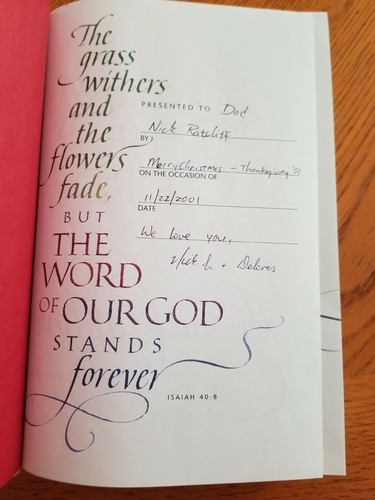 The
grass
withers
and
the
flowers
fade,
BUT
THE
WORD
OF OUR GOD
STANDS
forever
ISAIAH 40:8
PRESENTED TO Dad
Nick Ratcliff
BY
Merry Christmas - Thanksgiving '01
ON THE OCCASION OF
11/22/2001
DATE
We love you,
+ Delores